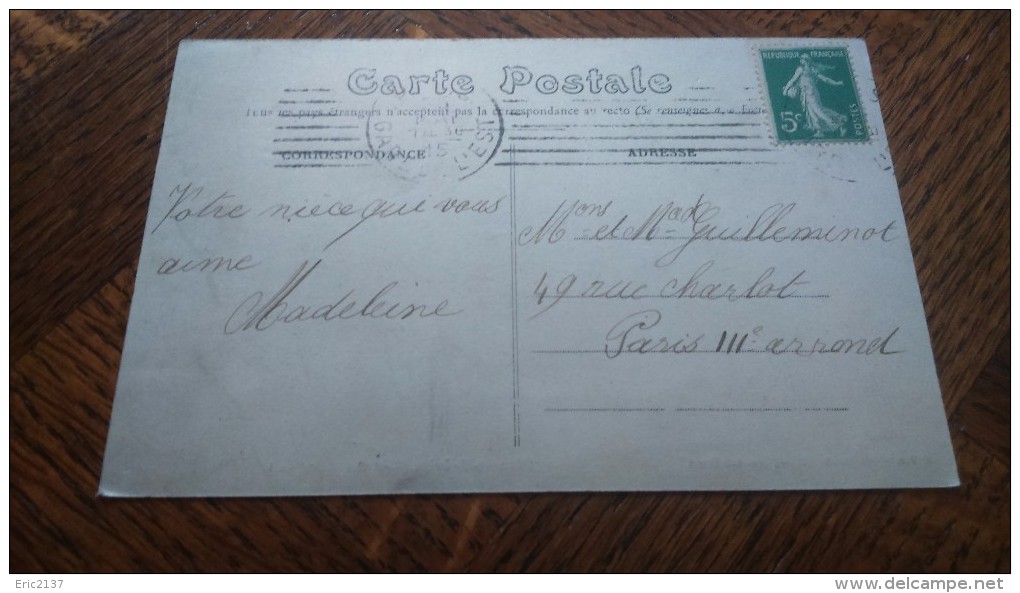 Carte Postale
Tous les pays étrangers n'acceptent pas la correspondance au recto (Se renseigner à la Poste)
CORRESPONDANCE
ADRESSE
REPUBLIQUE FRANÇAISE
5c
POSTES
Votre nièce qui vous
aime
Madeleine
Mons et Mad Guilleminot
49 rue Charlot
Paris IIIe arrond
Eric2137
www.delcampe.net